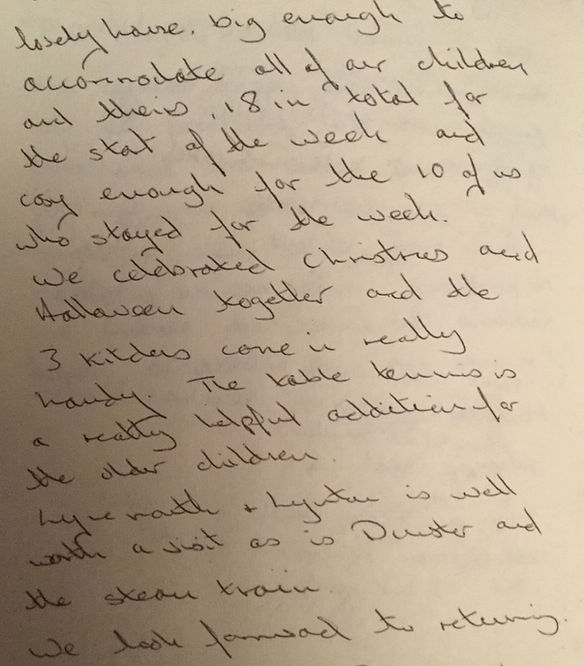 lovely house, big enough to
accommodate all of our children
and theirs, 18 in total for
the start of the week and
cosy enough for the 10 of us
who stayed for the week.
We celebrated Christmas and
Halloween together and the
3 kitchens came in really
handy. The table tennis is
a really helpful addition for
the older children.
Lynmouth + Lynton is well
worth a visit as is Dunster and
the steam train.
We look forward to returning.